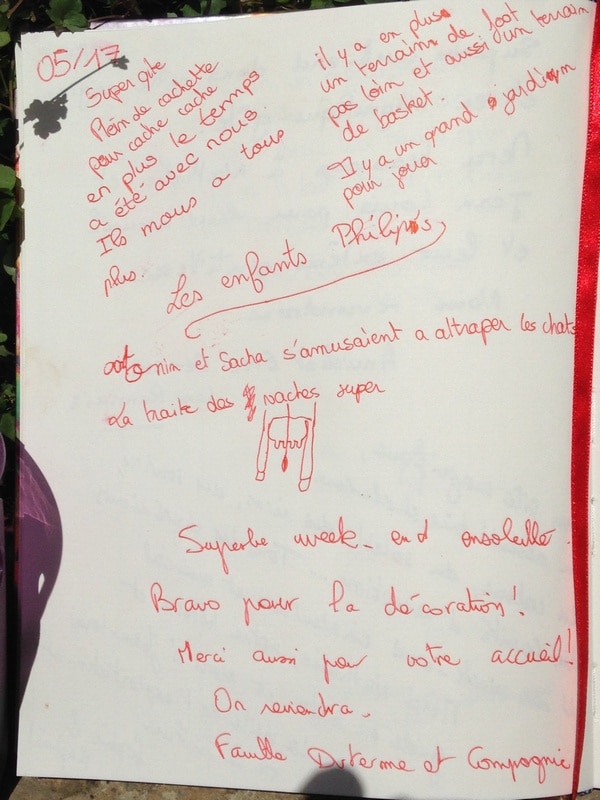 05/17
Super gite
Plein de cachette
pour cache cache
en plus le temps
a été avec nous
Ils nous a tous
plus.
il y a en plus
un terrain de foot
pas loin et aussi un terrain
de basket.
Il y a un grand jardin
pour jouer
Les enfants Philip's
nin et Sacha s'amusaient a attraper les chats
La traite des vaches super
Superbe week-end ensoleillé.
Bravo pour la décoration!
Merci aussi pour votre accueil!
On reviendra.
Famille Duterme et Compagnie